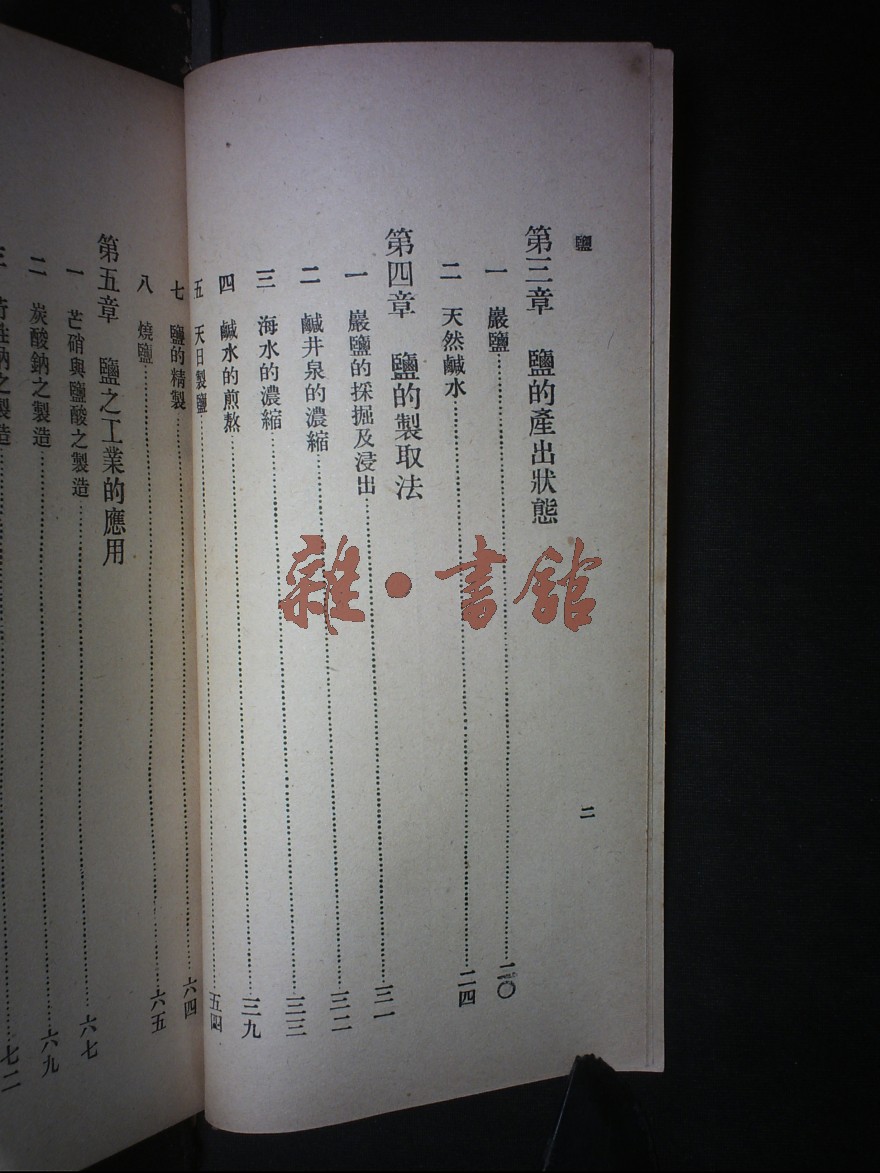 鹽
二
第三章　鹽的產出狀態
一　巖鹽……二〇
二　天然鹹水……二四
第四章　鹽的製取法
一　巖鹽的採掘及浸出……三一
二　鹹井泉的濃縮……三二
三　海水的濃縮……三三
四　鹹水的煎熬……三九
五　天日製鹽……五四
七　鹽的精製……六四
八　燒鹽……六五
第五章　鹽之工業的應用
一　芒硝與鹽酸之製造……六七
二　炭酸鈉之製造……六九
性鈉之製造……七二
雜·書館